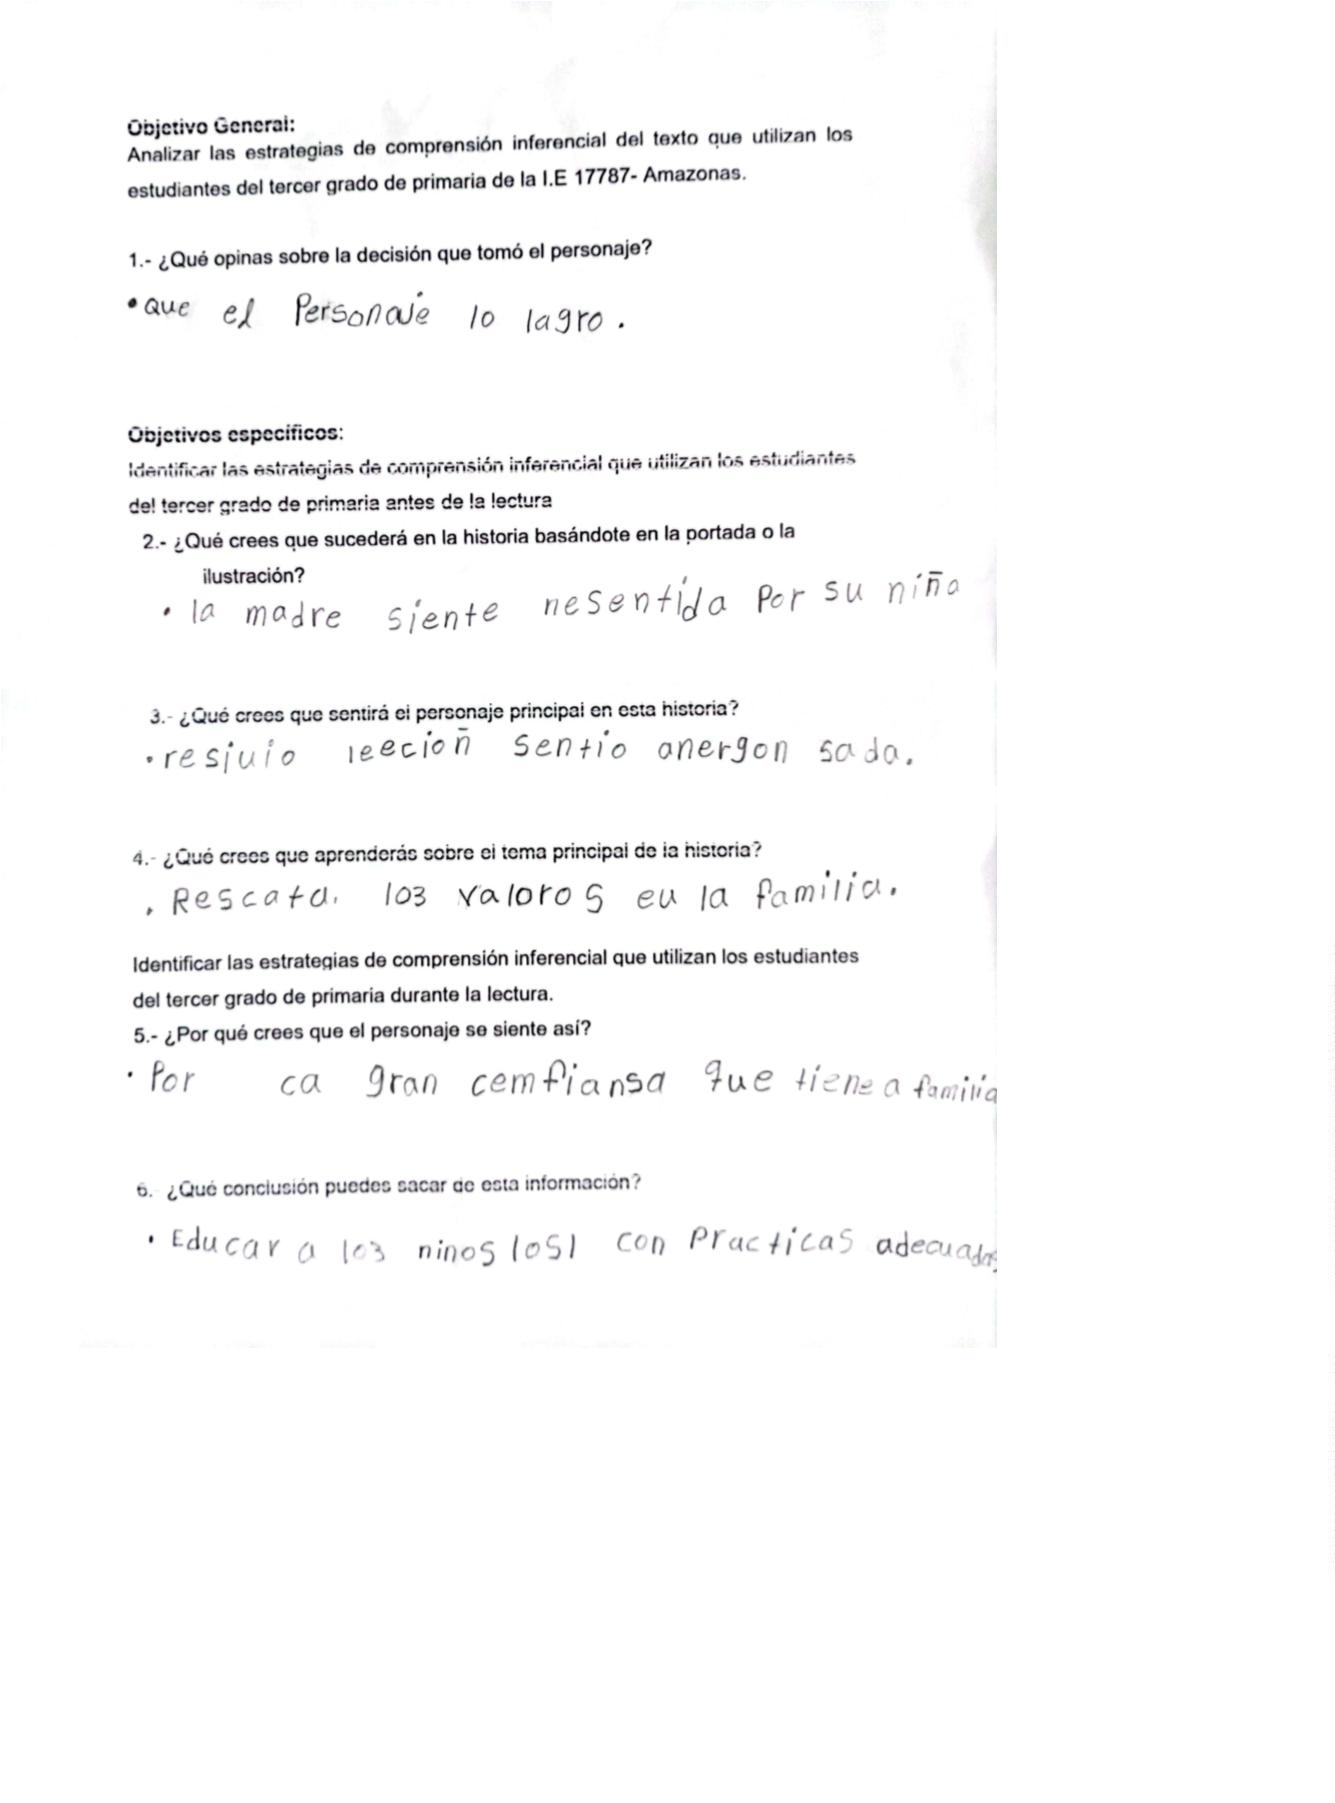 Objetivo General:
Analizar las estrategias de comprensión inferencial del texto que utilizan los
estudiantes del tercer grado de primaria de la I.E 17787- Amazonas.
1.- ¿Qué opinas sobre la decisión que tomó el personaje?
• Que el Personaje lo lagro.
Objetivos específicos:
Identificar las estrategias de comprensión inferencial que utilizan los estudiantes
del tercer grado de primaria antes de la lectura
2.- ¿Qué crees que sucederá en la historia basándote en la portada o la
ilustración?
• la madre siente nesentida Por su niña
3.- ¿Qué crees que sentirá el personaje principal en esta historia?
• resiuio leecioñ sentio anergon sada.
4.- ¿Qué crees que aprenderás sobre el tema principal de la historia?
• Rescata. los valoros eu la familia.
Identificar las estrategias de comprensión inferencial que utilizan los estudiantes
del tercer grado de primaria durante la lectura.
5.- ¿Por qué crees que el personaje se siente así?
• Por ca gran cemfiansa que tiene a familia
6. ¿Qué conclusión puedes sacar de esta información?
• Educar a los ninos losl con Practicas adecuadas